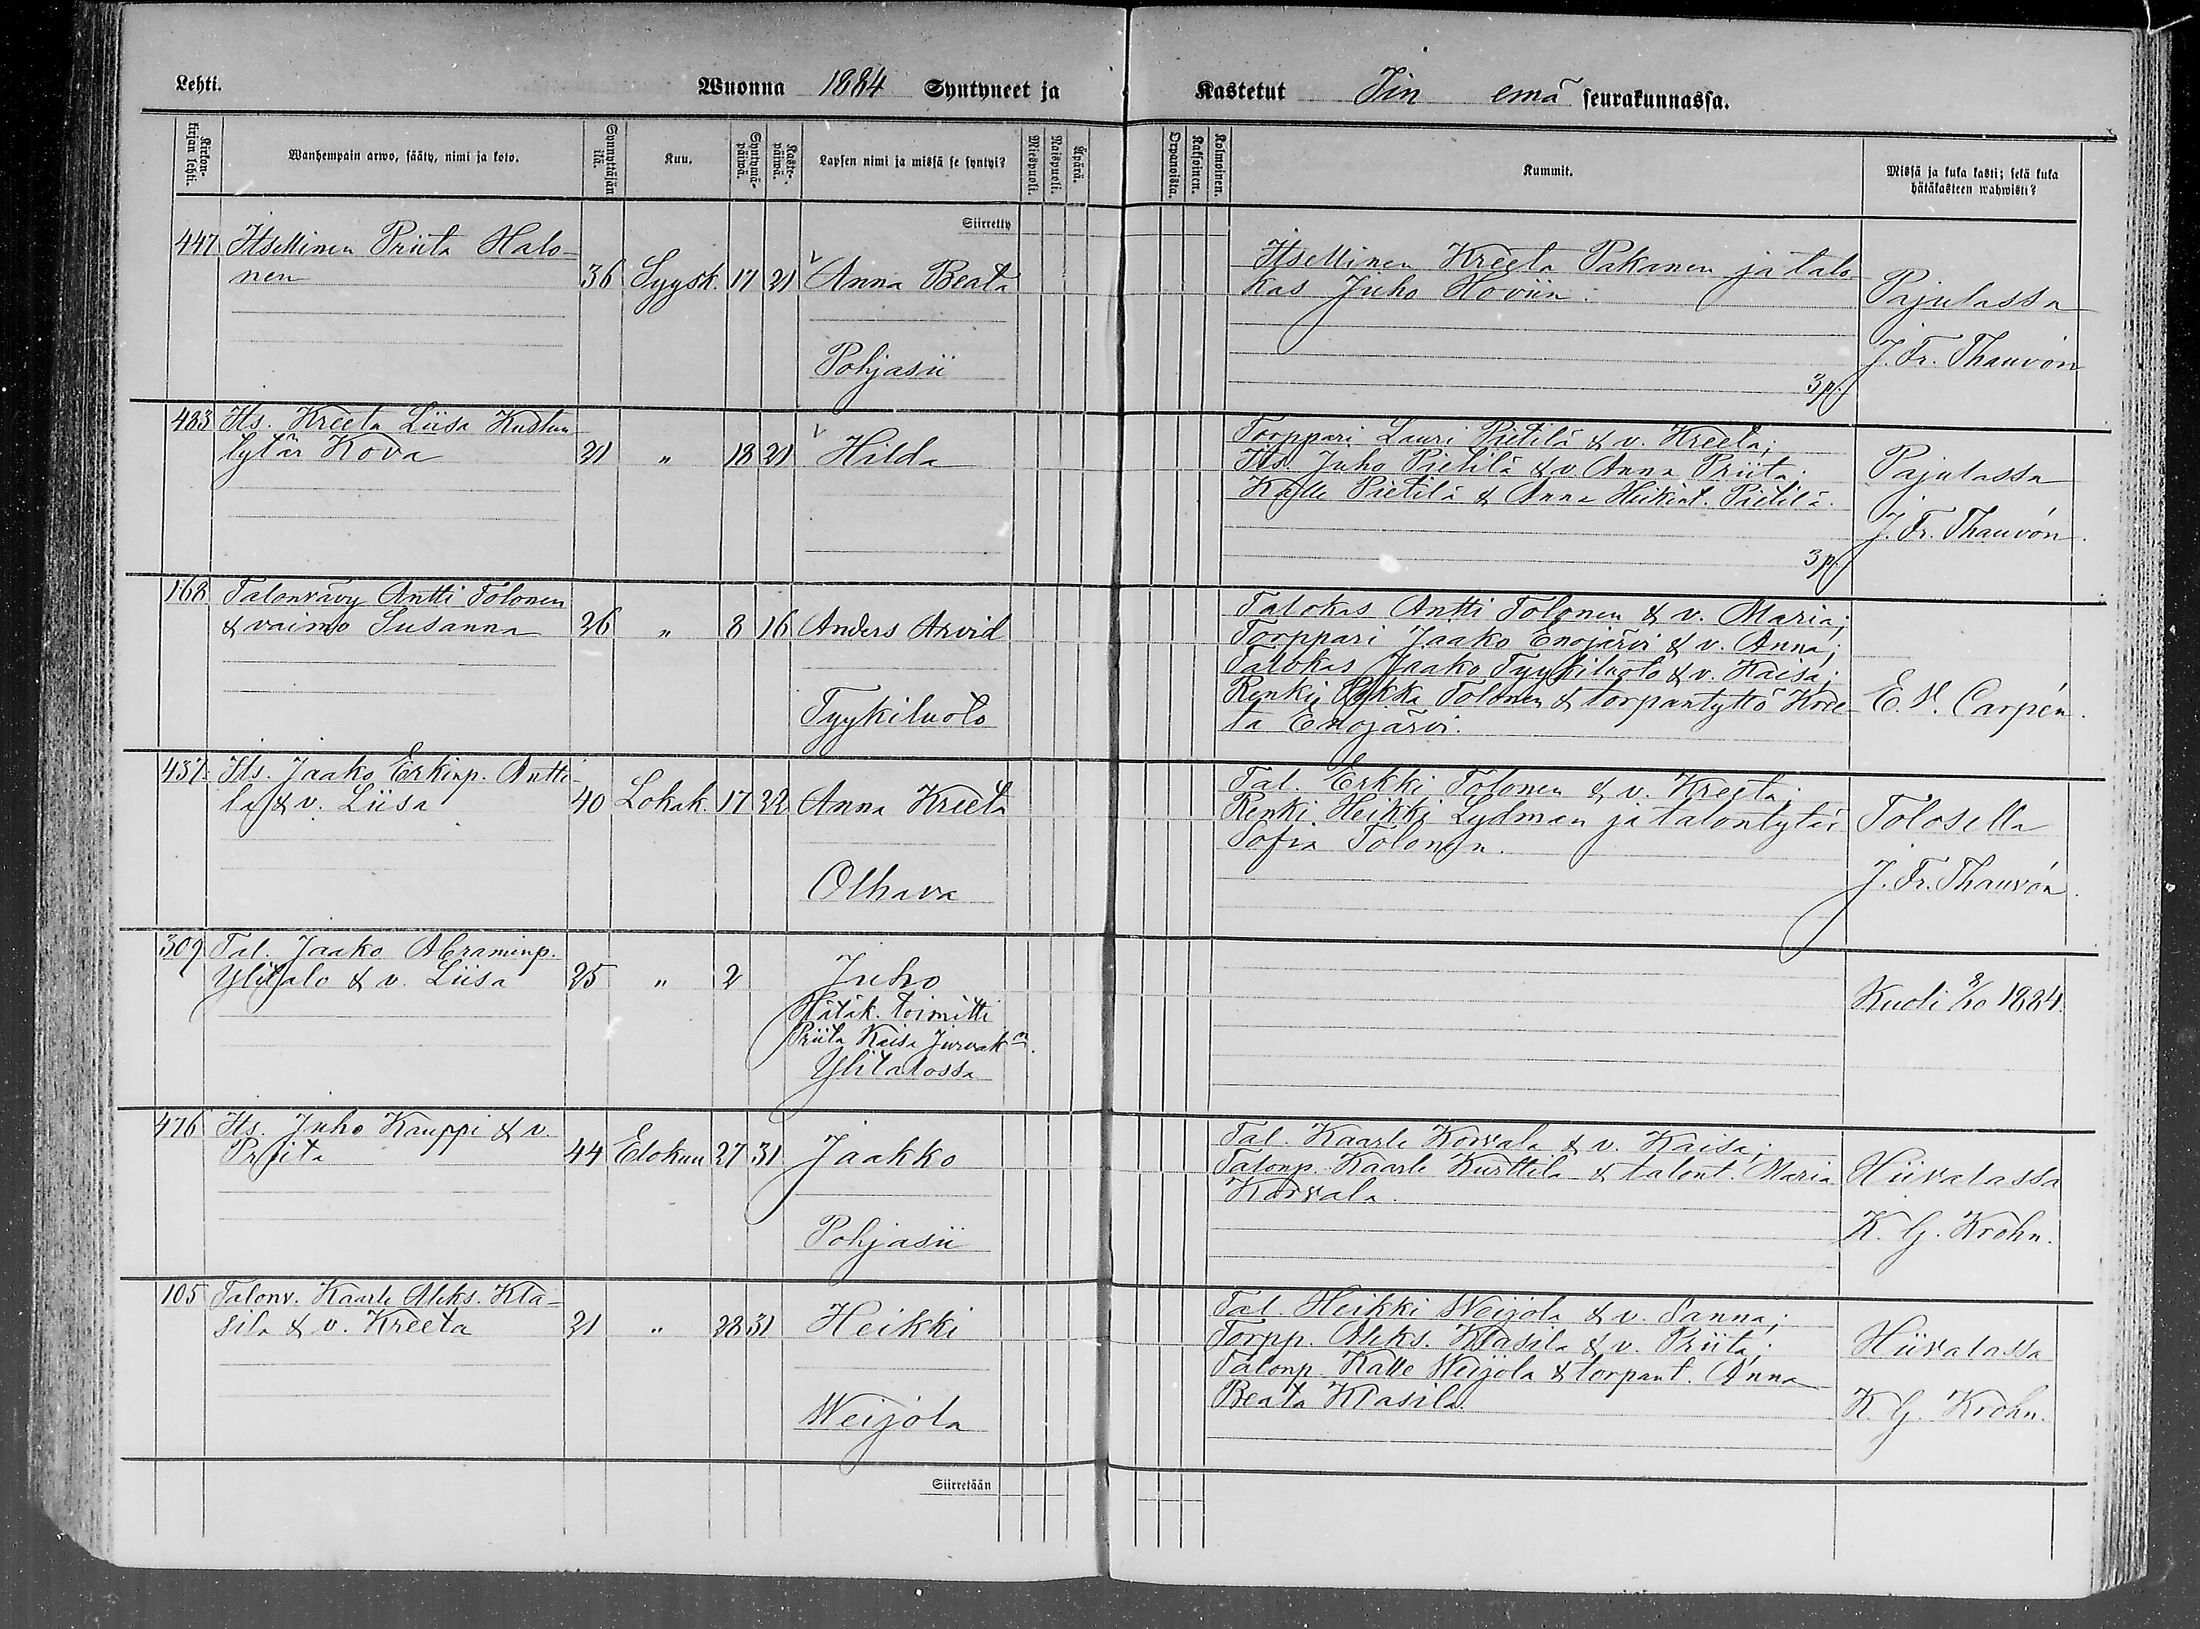 Lehti. Wuonna 1884 Syntyneet ja Kastetut Iin emä seurakunnassa.
Kirkonkirjan lehti. Wanhempain arwo, sääty, nimi ja koto. Synnyttäjän ikä. Kuu. Syntymäpäiwä. Kastepäiwä. Lapsen nimi ja missä se syntyi? Miespuoli. Naispuoli. Äpärä. Orpanoista. Kaksoinen. Kolmoinen. Kummit. Missä ja kuka kasti; sekä kuka hätäkasteen wahwisti?
Siirretty
447 Itsellinen Priita Halo-
nen 36 Syysk. 17 21 Anna Beata
Pohjasii
Itsellinen Kreeta Pakanen ja talo
kas Juho Hoviin.
3 p.
Pajulassa
J. Fr. Thauvón
483 Its. Kreeta Liisa Kustun
tytär Kova 21 " 18 21 Hilda
Torppari Lauri Pietilä & v. Kreeta;
Its. Juho Pietilä & v. Anna Priita.
Kalle Pietilä & Anna Heikint. Pietilä.
3 p.
Pajulassa
J. Fr. Thauvón.
168 Talonvävy Antti Tolonen
& vaimo Susanna 26 " 8 16 Anders Arvid
Tyykiluoto
Talokas Antti Tolonen & v. Maria;
Torppari Jaako Enojärvi & v. Anna;
Talokas Jaako Tyykiluoto & v. Kaisa;
Renki Pekka Tolonen & torpantyttö Kree-
ta Enojärvi.
E. V. Carpén.
437 Its. Jaako Erkinp. Antti-
la & v. Liisa 40 Lokak. 17 22 Anna Kreeta
Olhava
Tal. Erkki Tolonen & v. Kreeta;
Renki Heikki Lydman ja talontytär
Sofia Tolonen.
Tolosella
J. Fr. Thauvón.
309 Tal. Jaako Abraminp.
Ylitalo & v. Liisa 25 " 2 Juho
Hätäk. toimitti
Priita Kaisa
Ylitalossa
Kuoli 3/10 1884.
476 Its. Juho Kauppi & v.
Priita 44 Elokuu 27 31 Jaakko
Pohjasii
Tal. Kaarle Korvala & v. Kaisa;
Talonp. Kaarle Kurttila & talont. Maria
Korvala.
Hiivalassa
K. G. Krohn.
105 Talonv. Kaarle Aleks. Kla-
sila & v. Kreeta 21 " 28 31 Heikki
Weijola
Tal. Heikki Weijola & v. Sanna;
Torpp. Aleks. Klasila & v. Priita;
Talonp. Kalle Weijola & torpant. Anna
Beata Klasila
Hiivalassa
K. G. Krohn.
Siirretään